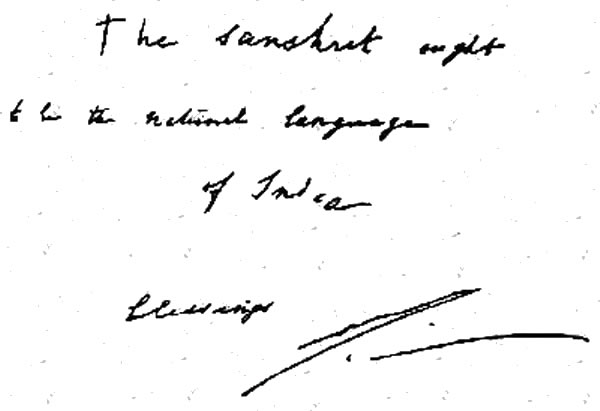 The Sanskrit ought
to be the national language
of India
blessings